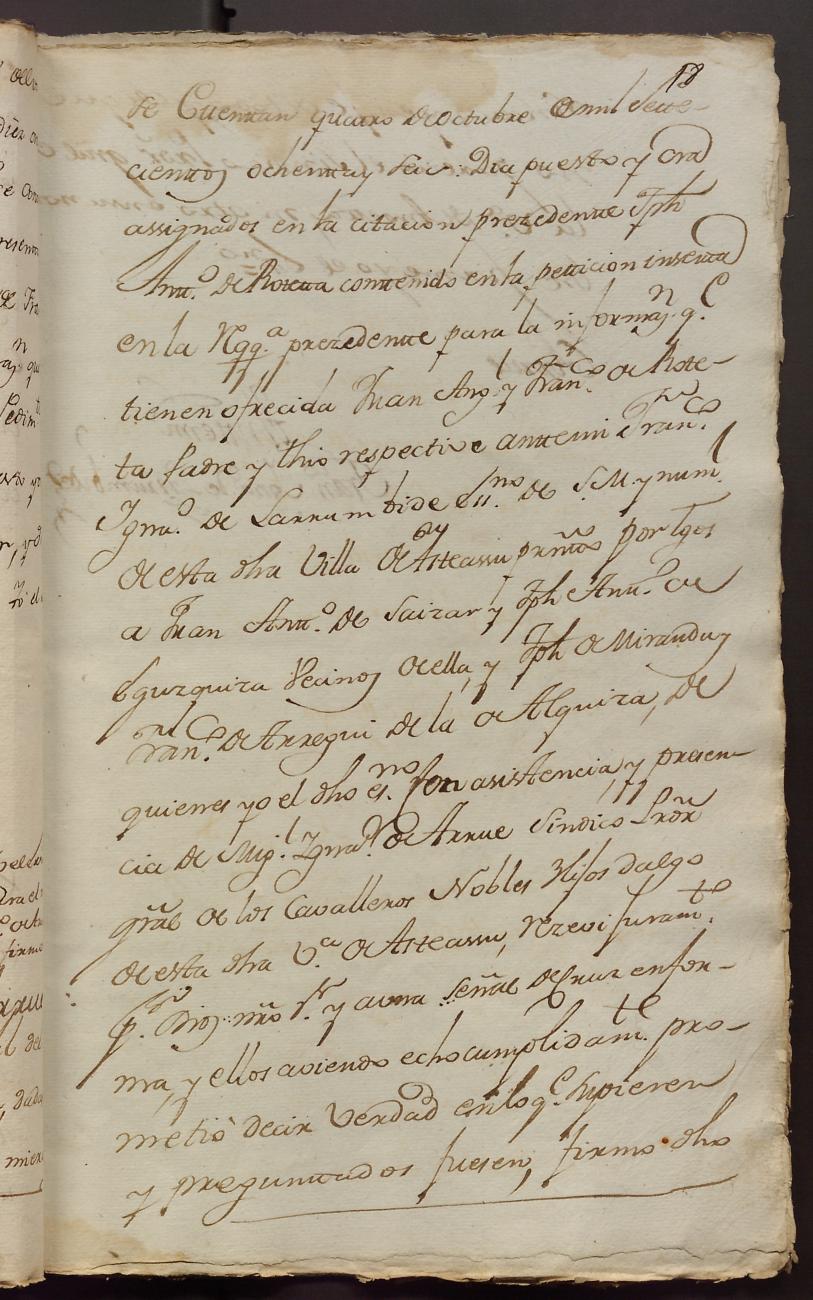 18
se Cuentan quatro de Octubre de mil Sete-
cientos ochenta y seis: Dia puesto y ora
assignados en la citacion prezedente Jph
Antt.º de Roteta contenido en la petticion inserta
en la Rqq.ª prezedente para la informaz.n q.e
tienen ofrecida Juan Ang.l y Fran.co de Rote-
ta Padre y thio respective antemi Fran.co
Ygna.º de Larrumbide ess.no de S.M. y num.l
de esta dha Villa de Asteassu presento por tgos
a Juan Antt.º de Saizar y Jph Antt.º de
Eguzquiza Vecinos de ella, y Jph de Miranda y
Fran.co de Arregui de la de Alquiza, de
quienes yo el dho es.no con asistencia y presen-
cia de Mig.l Ygna.º de Arrue Sindico Pror
gral de los Cavalleros Nobles Hijos dalgo
de esta dha V.ª de Asteassu, rezevi juram.to
p.r Dios nro S.r y a una señal de Cruz en for-
ma, y ellos aviendo echo cumplidam.te pro-
metió decir verdad en lo q.e supieren
y preguntados fuesen, firmo dho